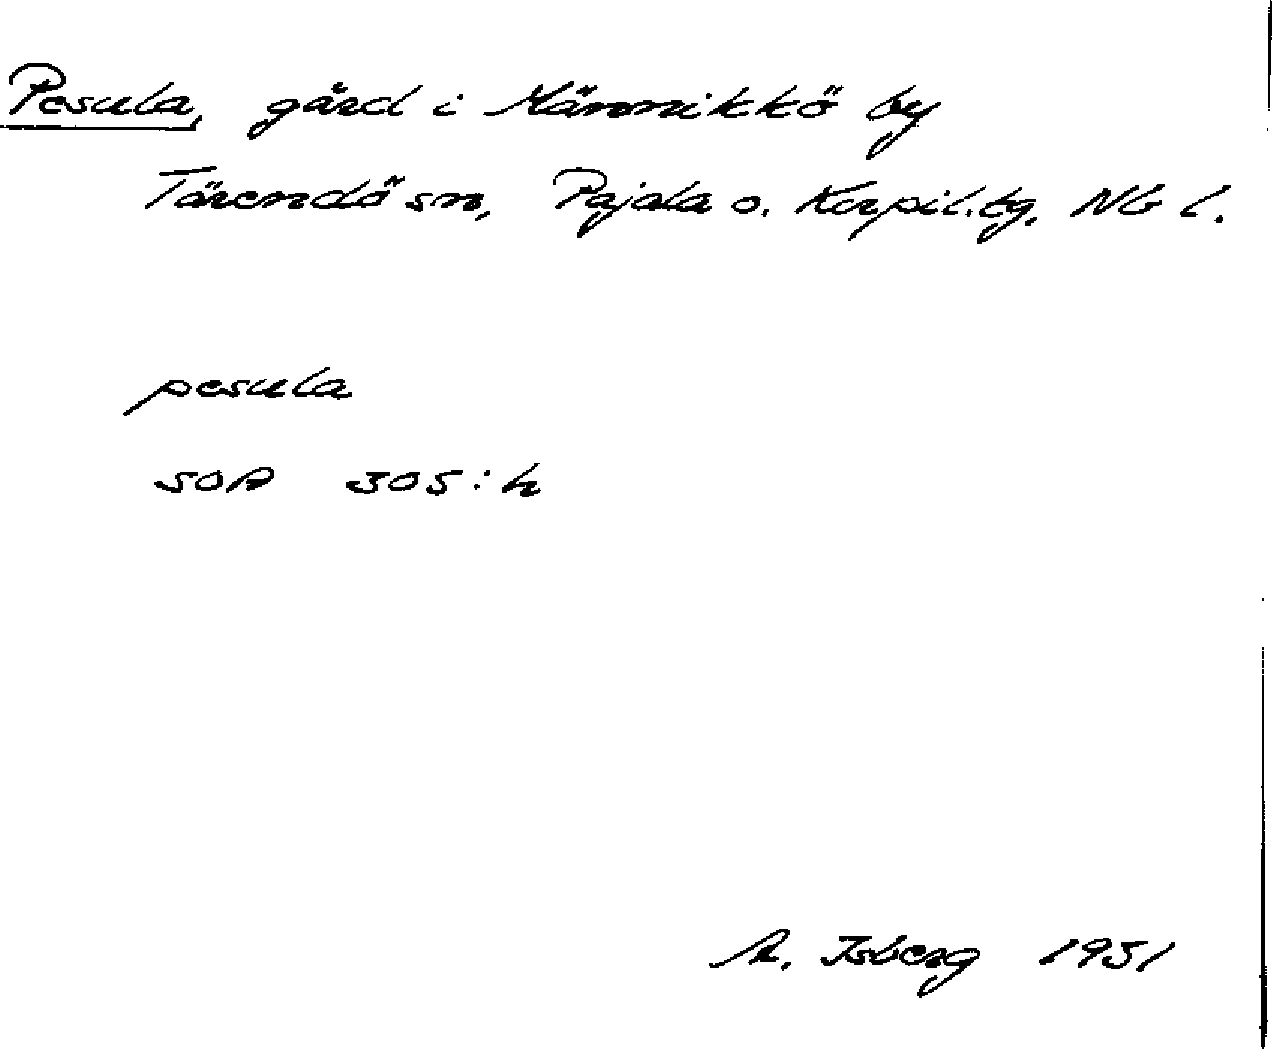 Pesula, gård i Männikkö by
Tärendö sn, Pajala o. Korpil. tg, Nb l.
pesula
SOA 305:h
A. Isberg 1951